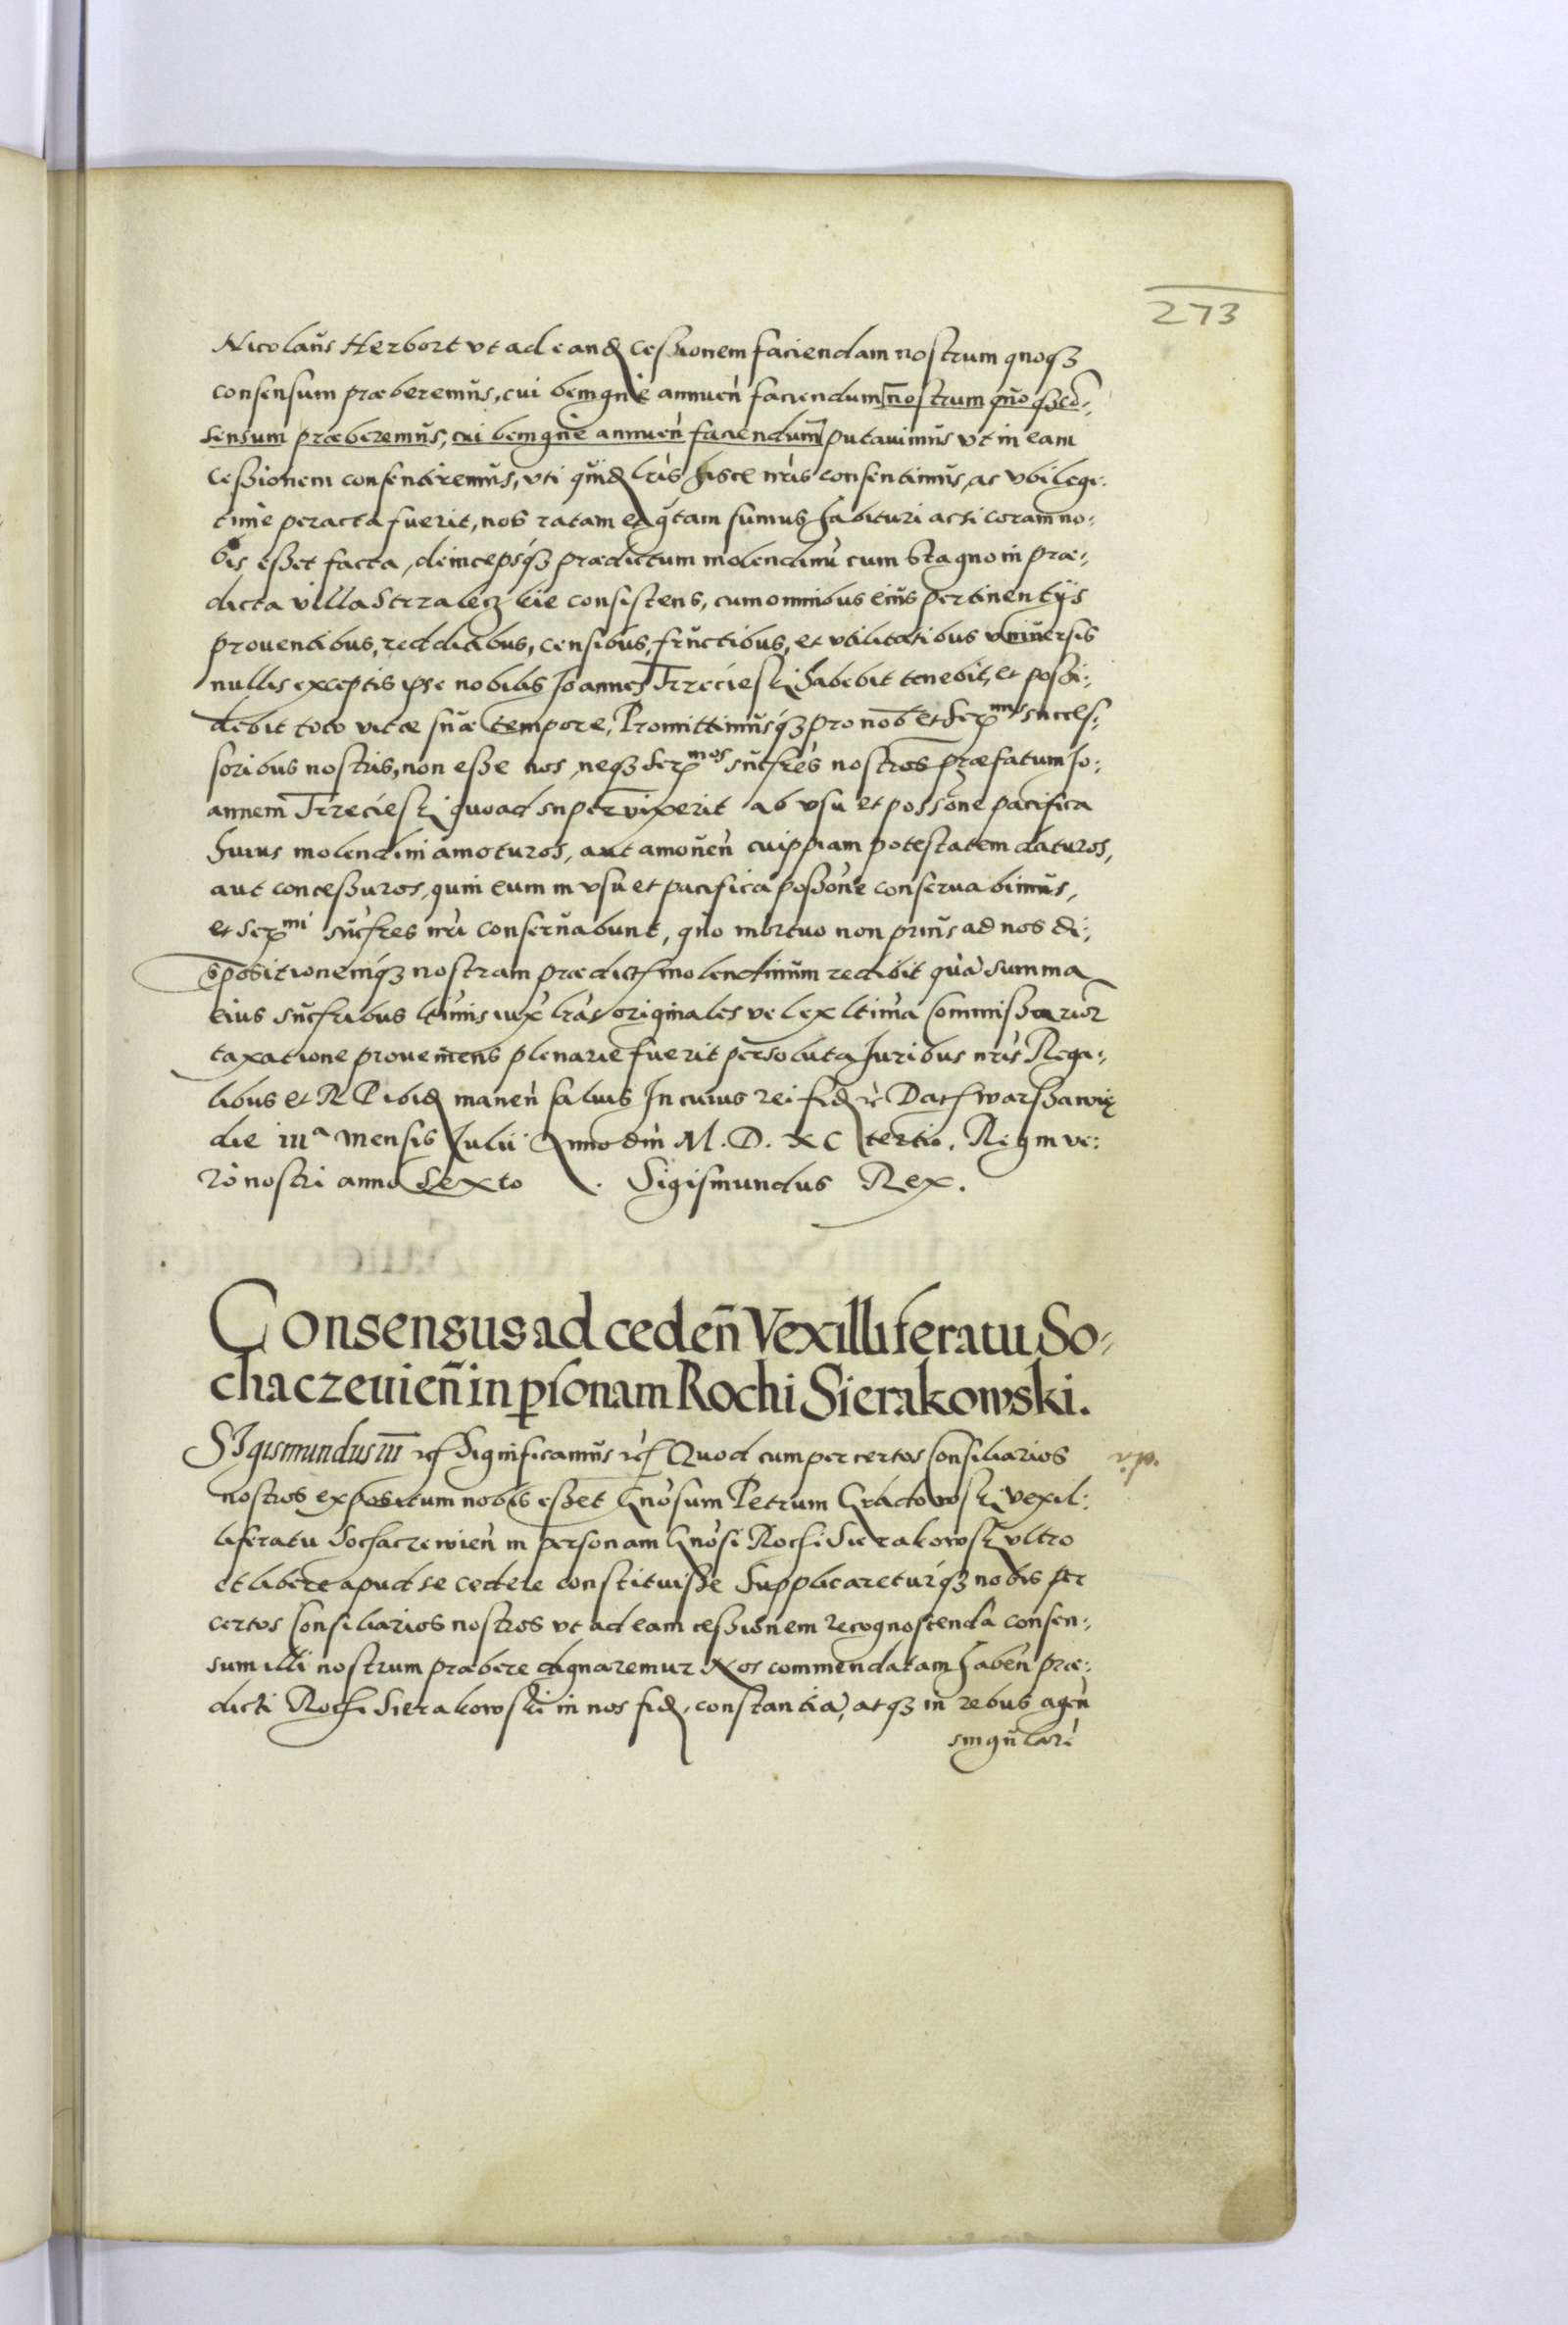 273
Nicolaus Herbort vt ad eand cessionem faciendam nostrum quoqʒ
consensum præberemus, cui benigne annuen̄ faciendum [nostrum quoqʒ cō:
sensum præberemus, cui benigne annuen̄ faciendum] putauimus vt in eam
cessionem consentiremus, vti quid lris hisce nris consentimus, ac vbi legi:
time peracta fuerit, nos ratam et gtam sumus habituri ac si coram no:
bis esset facta, deincepsqʒ prædictum molendinū cum stagno in præ:
dicta villa consistens, cum omnibus eius pertinentijs
prouentibus, redditibus, censibus, fructibus, et vtilitatibus vniuersis
nullis exceptis ipse nobilis Joannes Trzecieski habebit tenebit, et possi:
debit toto vitæ suæ tempore, Promittimusqʒ pro nob et Ser^mis succes:
soribus nostris, non esse nos, neqʒ Ser^mos succres nostros præfatum Jo:
annem Trzecieski quoad superuixerit ab vsu et possone pacifica
huius molendini amoturos, aut amouen̄ cuippiam potestatem daturos,
aut concessuros, quin eum in vsu et pacifica possone conseruabimus,
et Ser^mi succres nri conseruabunt, quo mortuo non prius ad nos di:
spositionemqʒ nostram prædict molendinum redibit quā summa
eius succribus ltimis iux lras originales vel ex ltima Commissarior
taxatione proueniens plenarie fuerit persoluta Juribus nris Rega:
libus et R P ibid manen̄ saluis In cuius rei fid rc Dat Warssawiæ
die iii^a Mensis Julii Anno dni M. D. XC tertio. Regni ve:
ro nostri anno Sexto . Sigismundus Rex.
Consensus ad ceden̄ Vexilliferatu So:
chaczeuien̄ in psonam Rochi Sierakowski.
SIgismundus iii rc Significamus rc Quod cum per certos Consiliarios
nostros expositum nobis esset Gnosum Petrum vexil:
liferatu Sochaczewien̄ in personam Gnosi Rochi Sierakowski vltro
et libere apud se cedere constituisse Supplicareturqʒ nobis per
certos Consiliarios nostros vt ad eam cessionem recognoscendā consen:
sum illi nostrum præbere dignaremur Nos commendatam haben̄ præ:
dicti Rochi Sierakowski in nos fid, constantiā, atqʒ in rebus agen̄
singularē